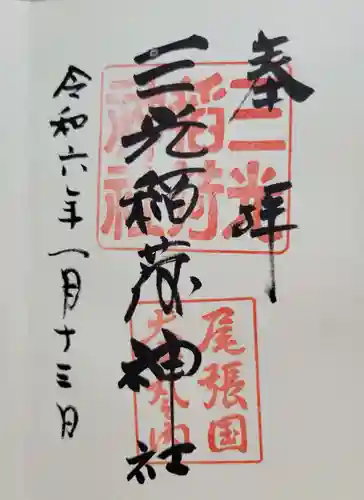 奉拝
三光稲荷神社
令和六年一月十三日
三光
稲荷
神社
尾張国
犬山城内